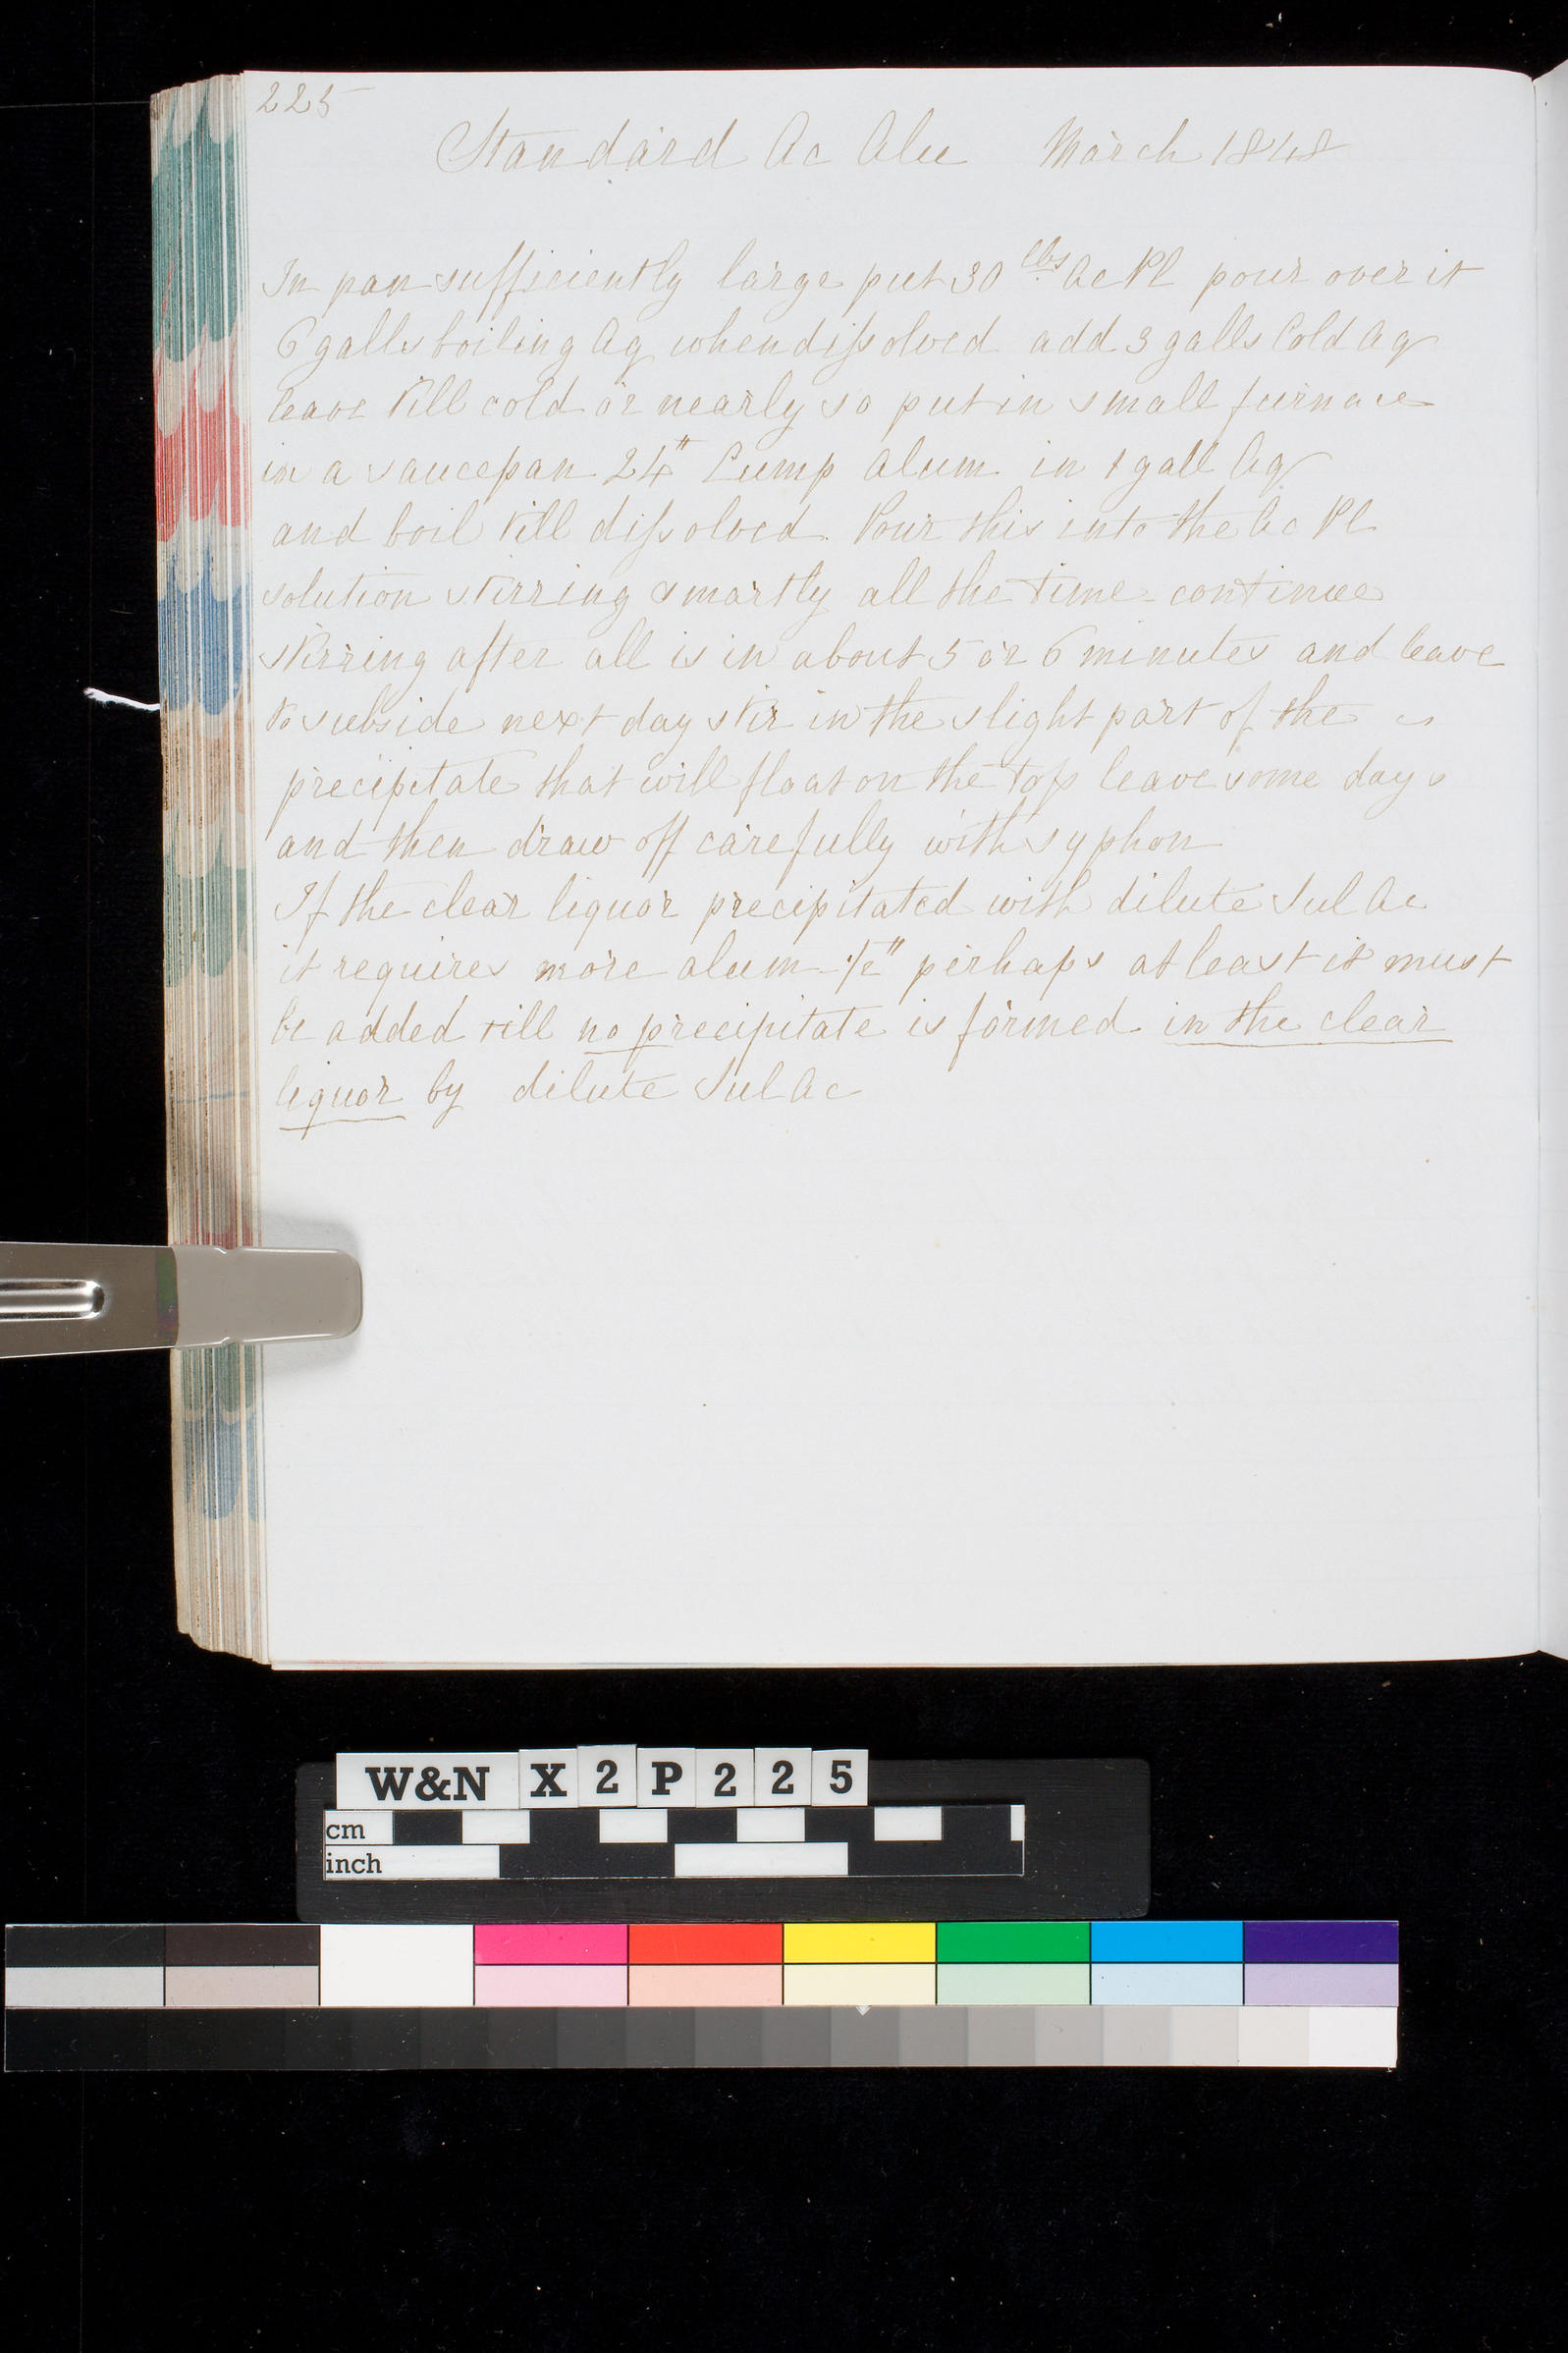 225
Standard Ac Alu March 1848
In pan sufficiently large put 30 lbs Ac Pl pour over it
6 galls boiling Aq when dissolved add 3 galls Cold Aq
leave till cold or nearly so put in small furnace
in a saucepan 24" Lump Alum in 1 gall Aq
and boil till dissolved. Pour this into the Ac Pl
solution stirring smartly all the time - continue
stirring after all is in about 5 or 6 minutes and leave
to subside next day stir in the slight part of the
precipitate that will float on the top leave some days
and then draw off carefully with syphon
If the clear liquor precipitated with dilute Sul Ac
it requires more alum - 1/2" perhaps at least it must
be added till no precipitate is formed in the clear
liquor by dilute Sul Ac
W&N X 2 P 2 2 5
cm
inch